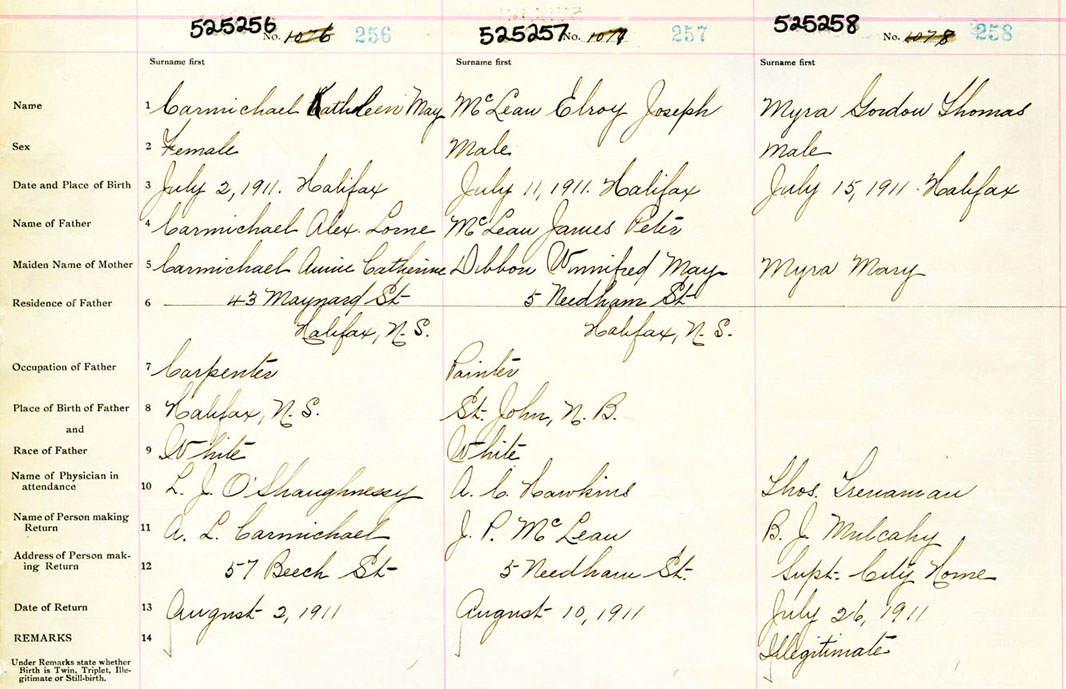 525256 No. 1076 256 525257 No. 1077 257 525258 No. 1078 258
Surname first Surname first Surname first
Name 1 Carmichael Kathleen May McLean Elroy Joseph Myra Gordon Thomas
Sex 2 Female Male Male
Date and Place of Birth 3 July 2, 1911. Halifax July 11, 1911. Halifax July 15, 1911. Halifax
Name of Father 4 Carmichael Alex. Lorne McLean James Peter
Maiden Name of Mother 5 Carmichael Annie Catherine Dibbon Winnifred May Myra Mary
Residence of Father 6 43 Maynard St 5 Needham St
Halifax, N.S. Halifax, N.S.
Occupation of Father 7 Carpenter Painter
Place of Birth of Father 8 Halifax, N.S. St. John, N.B.
and
Race of Father 9 White White
Name of Physician in
attendance 10 L. J. O'Shaughnessy A. C. Hawkins Thos. Trenaman
Name of Person making
Return 11 A. L. Carmichael J. P. McLean B. J. Mulcahy
Address of Person mak-
ing Return 12 57 Beech St 5 Needham St. Supt. City Home
Date of Return 13 August 2, 1911 August 10, 1911 July 26, 1911
REMARKS 14 Illegitimate
Under Remarks state whether
Birth is Twin, Triplet, Ille-
gitimate or Still-birth.